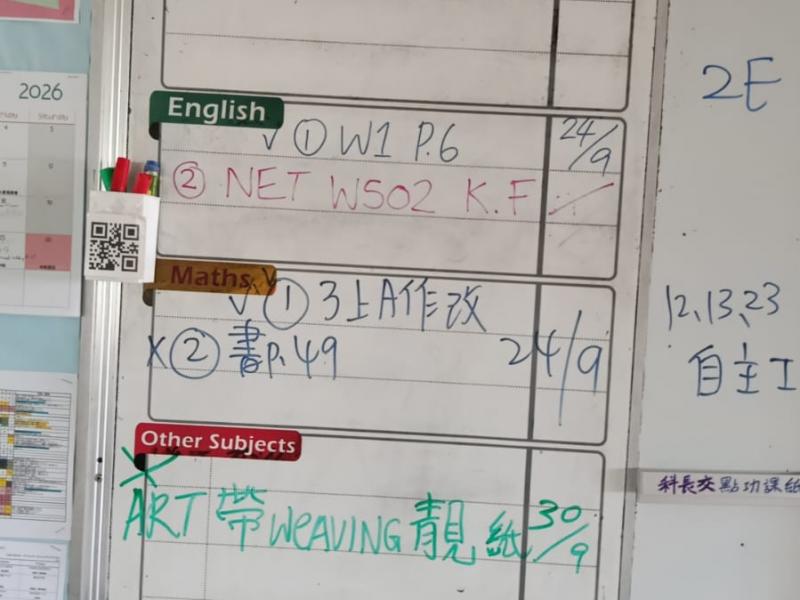 2026
Saturday
English
✓ ① W1 P.6 24/9
② NET WS02 K.F
Maths ✓
✓ ① 3上A作改
X ② 書P.49 24/9
Other Subjects
X
ART 帶 WEAVING 靚紙 30/9
2E
12、13、23
自主工
科長交點功課紙